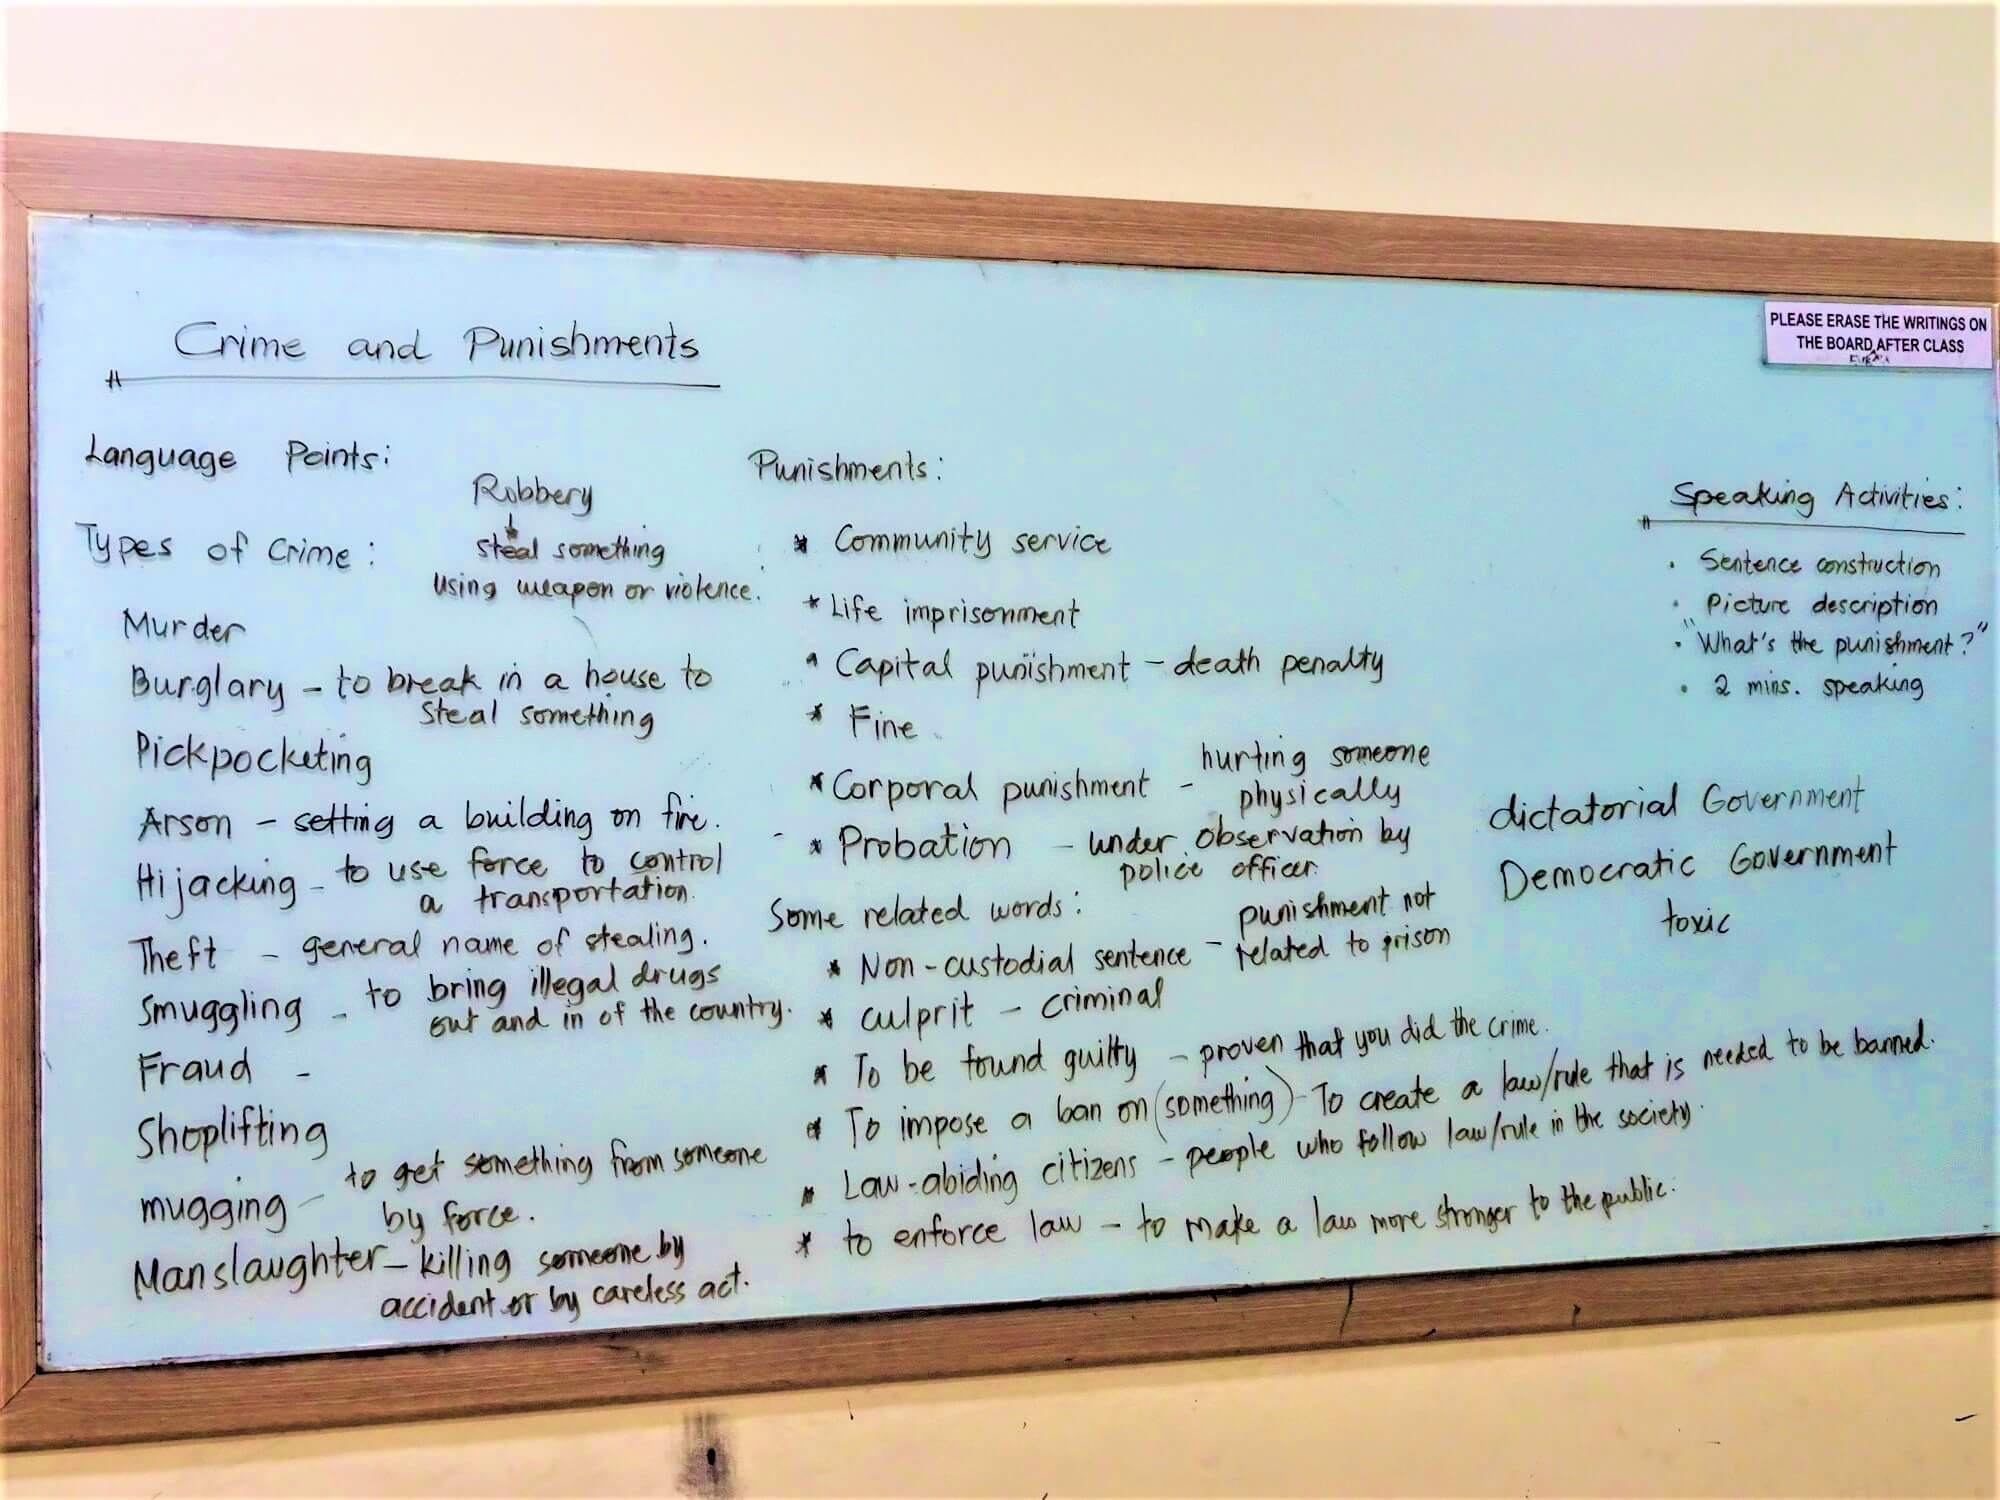 PLEASE ERASE THE WRITINGS ON
THE BOARD AFTER CLASS
Crime and Punishments
Language Points:
Robbery
steal something
using weapon or violence.
Types of Crime:
Murder
Burglary – to break in a house to
steal something
Pickpocketing
Arson – setting a building on fire.
Hijacking – to use force to control
a transportation.
Theft – general name of stealing.
Smuggling – to bring illegal drugs
out and in of the country.
Fraud –
Shoplifting
mugging – to get something from someone
by force.
Manslaughter – killing someone by
accident or by careless act.
Punishments:
* Community service
* Life imprisonment
* Capital punishment – death penalty
* Fine
* Corporal punishment – hurting someone
physically
* Probation – under observation by
police officer.
Some related words:
* Non-custodial sentence – punishment not
related to prison
* culprit – criminal
* To be found guilty – proven that you did the crime.
* To impose a ban on (something) – To create a law/rule that is needed to be banned.
* Law-abiding citizens – people who follow law/rule in the society.
* to enforce law – to make a law more stronger to the public.
Speaking Activities:
• Sentence construction
• Picture description
• "What's the punishment?"
• 2 mins. speaking
dictatorial Government
Democratic Government
toxic